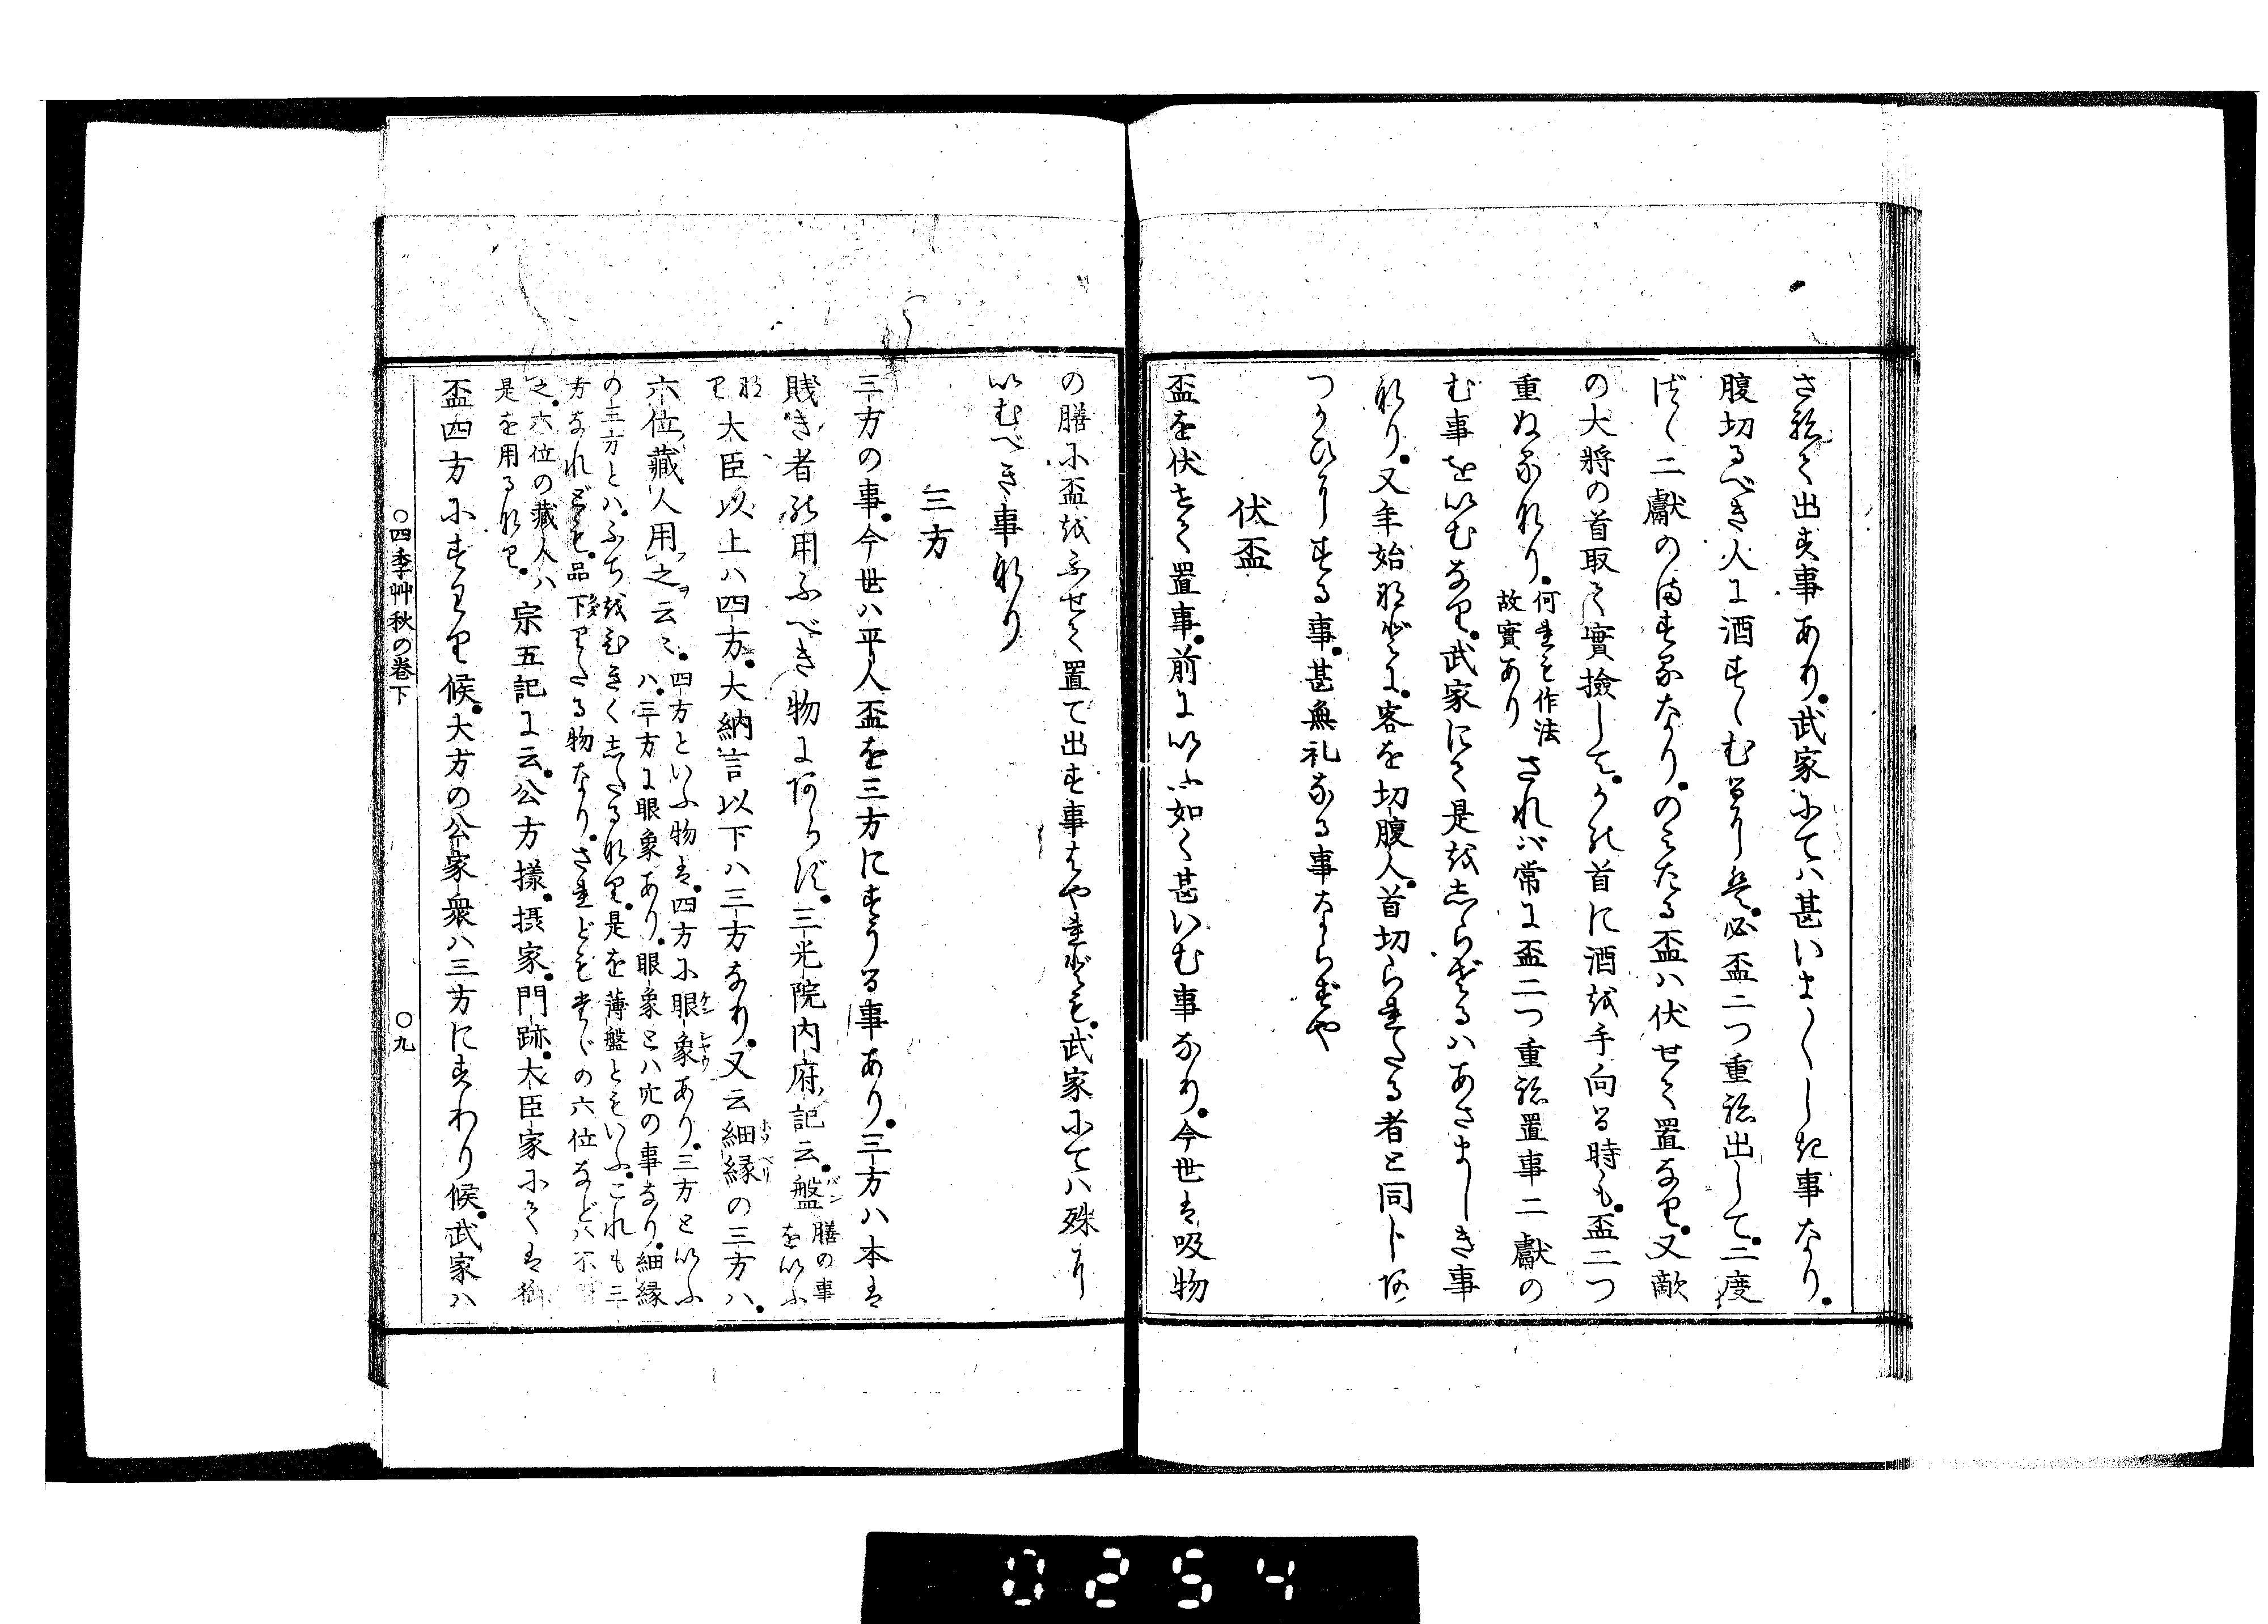 さねて出す事あり。武家にてハ甚いまくしき事なり。
腹切るべき人に酒すくむるにも。必盃二つ重ね出して。二度
づゝ二獻のまするなり。のミたる盃ハ伏せて置なり。又敵
の大將の首取て實撿して。その首に酒を手向る時も。盃二つ
重ぬるなり。
何れも作法
故實あり
されバ常に盃二つ重ね置事二獻の
む事をいむなり。武家にて是をしらざるハあさましき事
なり。又年始などに。客を切腹人。首切られたる者と同しあ
つかひにする事。甚無礼なる事ならずや
伏盃
盃を伏せて置事。前にいふ如く甚いむ事なり。今世は吸物
の膳に盃をふせて置て出す事はやれども。武家にてハ殊に
いむべき事なり
三方
三方の事。今世ハ平人盃を三方にすうる事あり。三方ハ本は
賤き者の用ふべき物にあらず。三光院内府記云。盤
バン
膳の事
をいふ
なり
大臣以上ハ四方。大納言以下ハ三方なり。又云細縁の三方ハ。
ホソベリ
六位藏人用之云々。
四方といふ物は。四方に眼象あり。三方といふ
ケンシヤウ
ハ。三方に眼象あり。眼象とハ穴の事なり。細縁
の三方とハ。ふちをひきくしたるなり。是を薄盤ともいふ。これも三
方なれども。品下りたる物なり。されども常の六位などハ不
之。六位の藏人ハ
是を用るなり。
宗五記に云。公方様。摂家。門跡。大臣家にては御
盃四方にすわり候。大方の公家衆ハ三方にすわり候。武家ハ
○四季艸秋の巻下
○九
0254